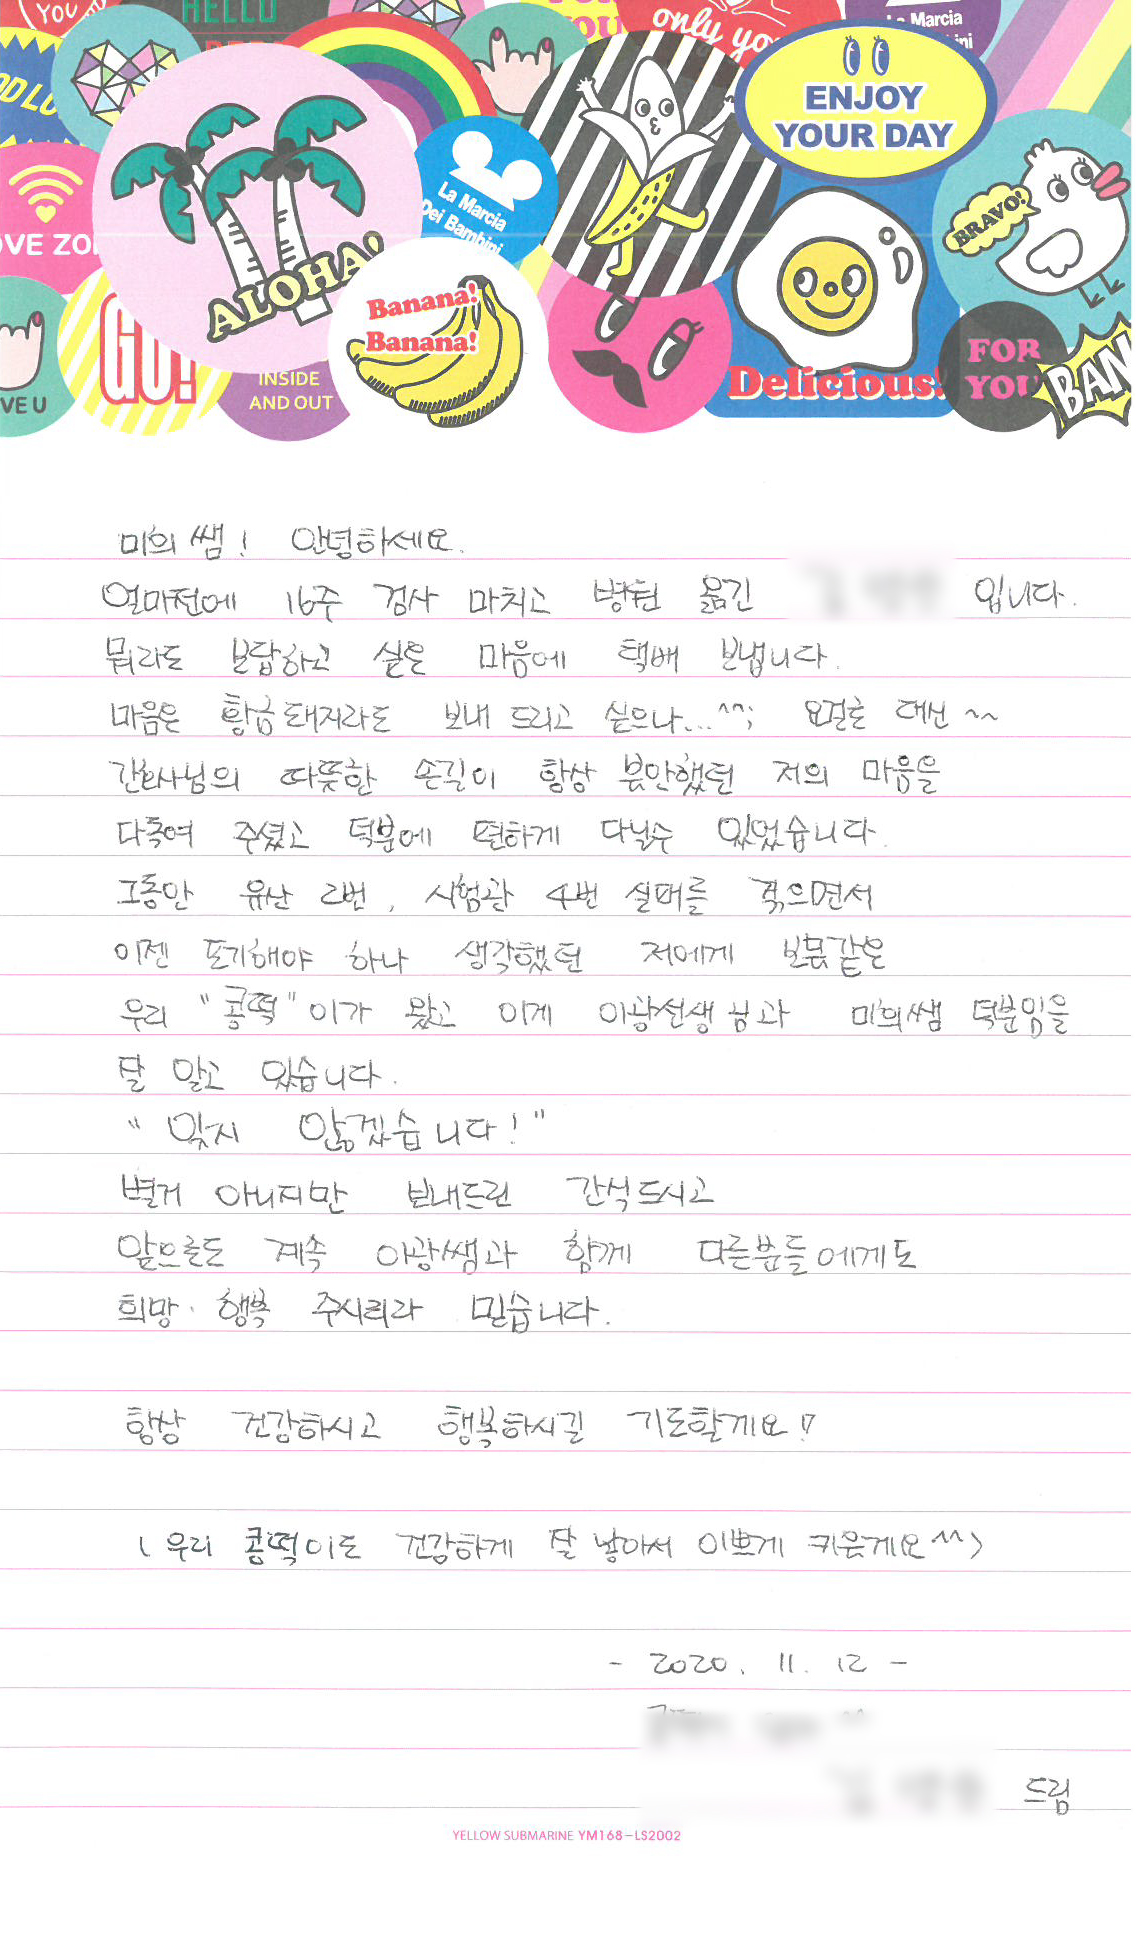 YOU
HELLO
only yo
La Marcia
ENJOY
YOUR DAY
La Marcia
Dei Bambini
BRAVO!
OVE ZO
ALOHA!
Banana!
Banana!
GO!
INSIDE
AND OUT
VE U
Delicious!
FOR
YOU
BAN
미희쌤! 안녕하세요.
얼마전에 16주 검사 마치고 병원 옮긴 입니다.
뭐라도 보답하고 싶은 마음에 택배 보냅니다.
마음은 황금돼지라도 보내 드리고 싶으나...^^; 요걸로 대신 ~~
간호사님의 따뜻한 손길이 항상 불안했던 저의 마음을
다독여 주셨고 덕분에 편하게 다닐수 있었습니다.
그동안 유산 2번, 시험관 4번 실패를 겪으면서
이젠 포기해야 하나 생각했던 저에게 보물같은
우리 "콩떡"이가 왔고 이게 이광선생님과 미희쌤 덕분임을
잘 알고 있습니다.
"잊지 않겠습니다!"
별거 아니지만 보내드린 간식드시고
앞으로도 계속 이광쌤과 함께 다른분들에게도
희망·행복 주시리라 믿습니다.
항상 건강하시고 행복하시길 기도할게요!
(우리 콩떡이도 건강하게 잘 낳아서 이쁘게 키울게요^^)
- 2020. 11. 12 -
드림
YELLOW SUBMARINE YM168-LS2002